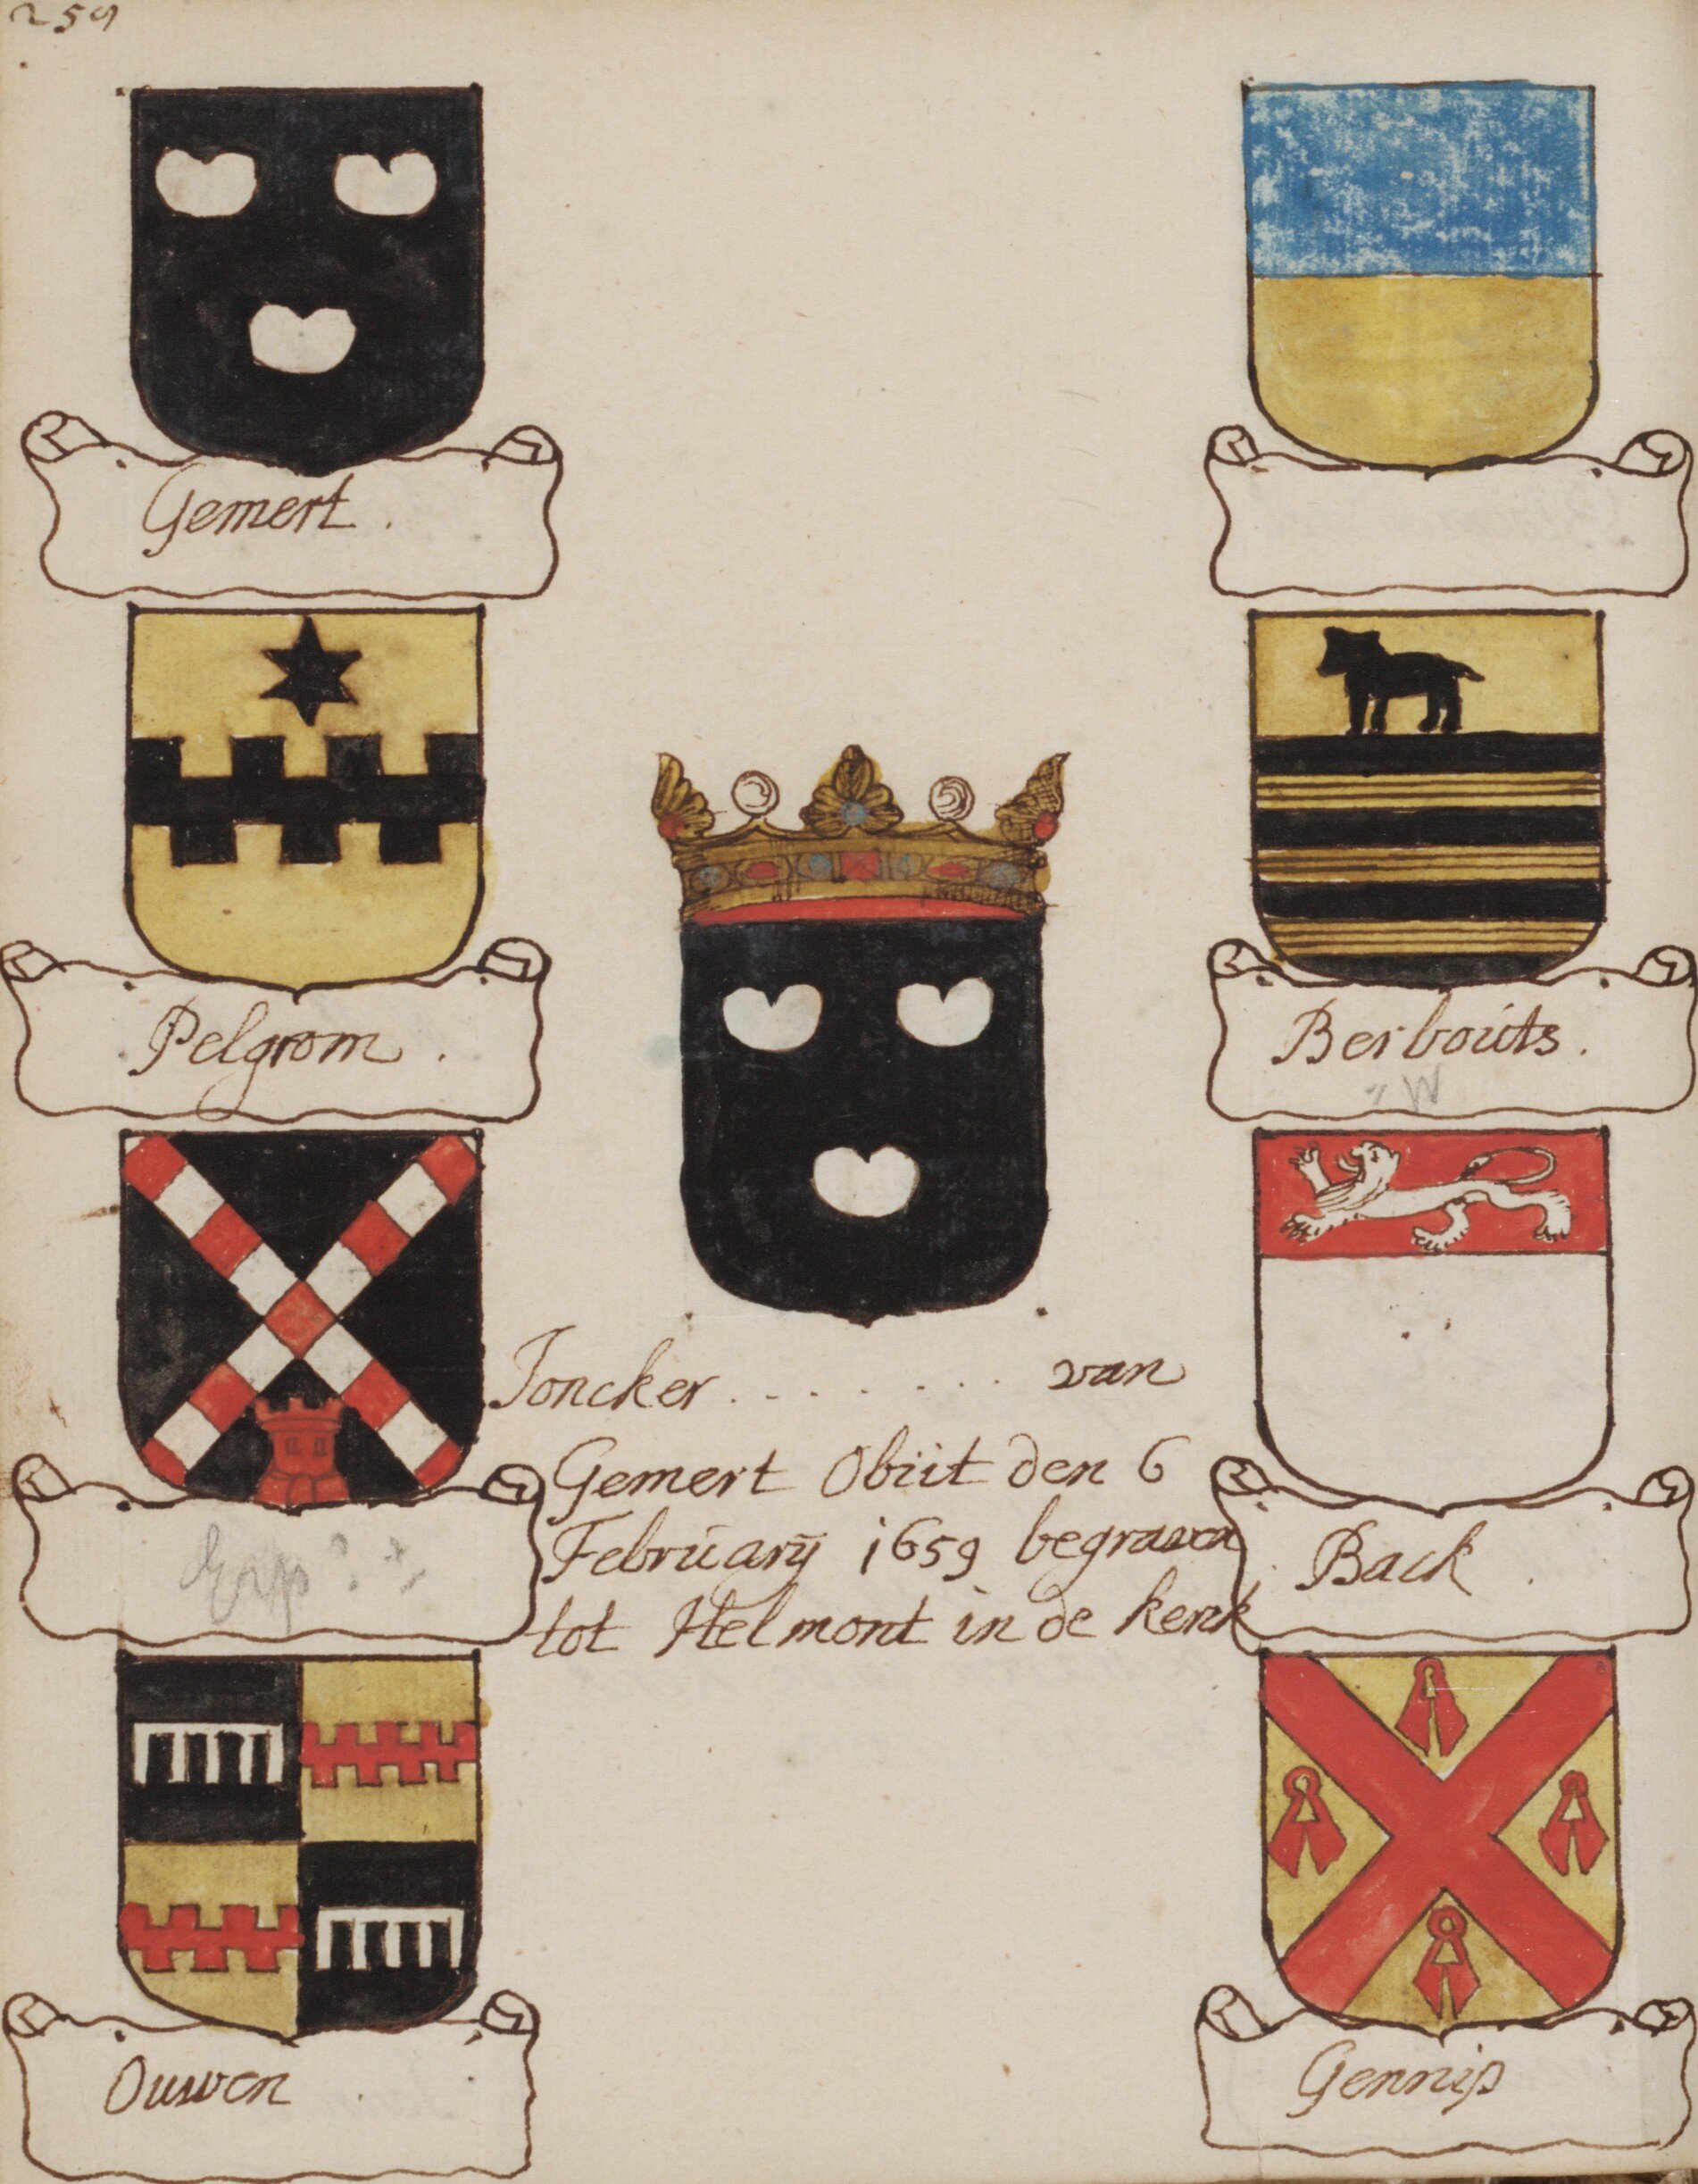 259
Gemert.
Pelgrom.
Berbouts.
W
Joncker . . . . . . . . van
Gemert Obiit den 6
February 1659 begraven
tot Helmont in de kerk
Erp?
Back.
Ouwen.
Gennip